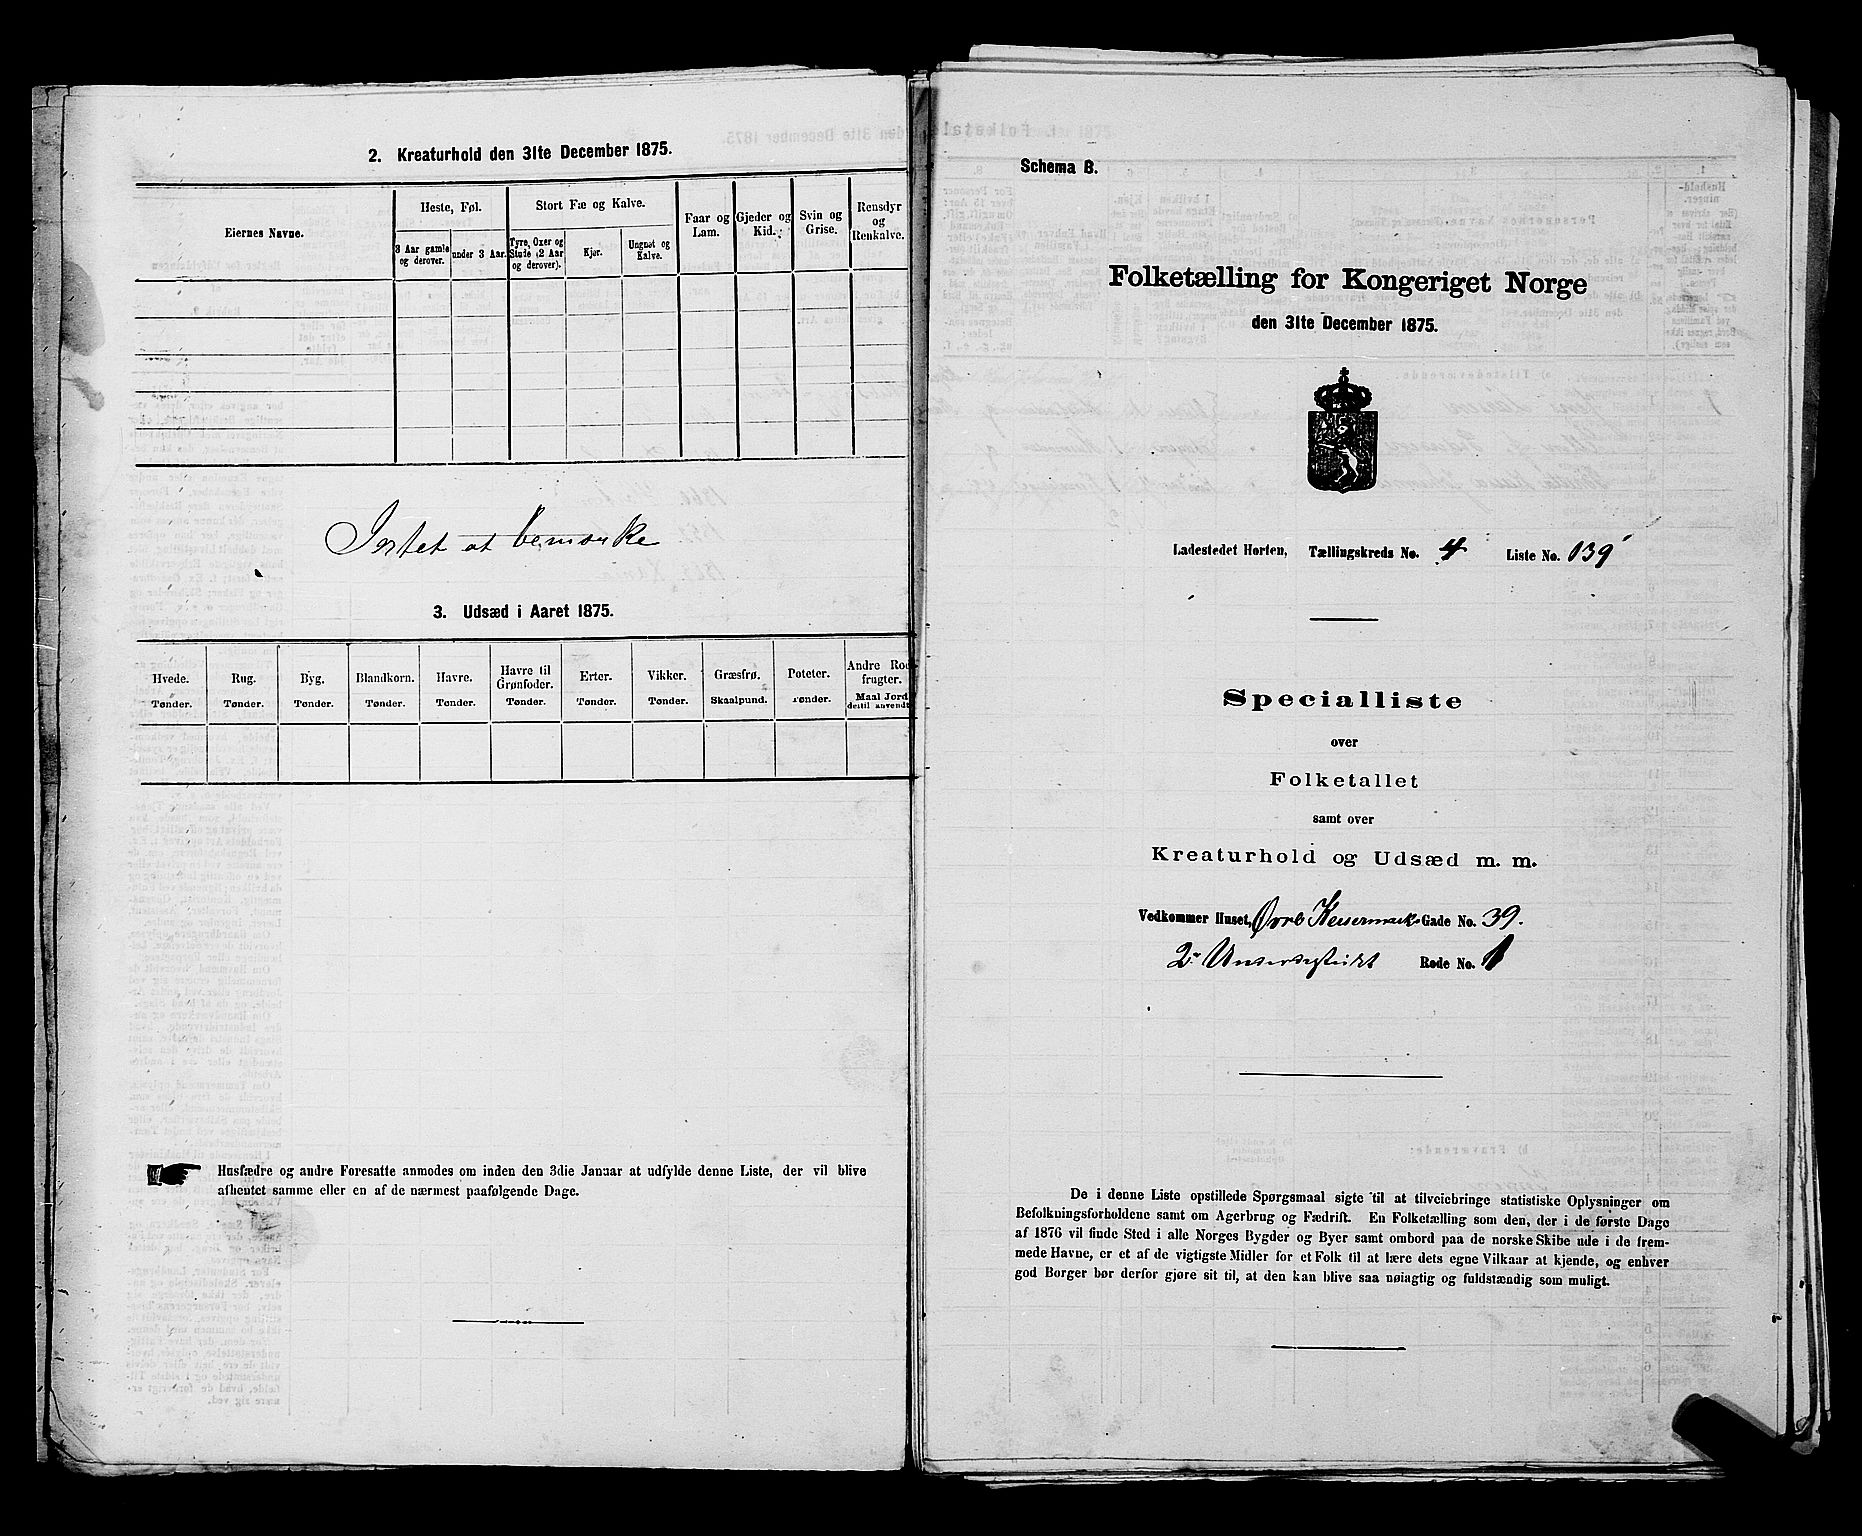 2. Kreaturhold den 31te December 1875.
Eiernes Navne.
Heste, Føl.
3 Aar gamle og derover.
under 3 Aar.
Stort Fæ og Kalve.
Tyre, Oxer og Stude (2 Aar og derover).
Kjør.
Ungnøt og Kalve.
Faar og Lam.
Gjeder og Kid.
Svin og Grise.
Rensdyr og Renkalve.
Intet at bemærke
3. Udsæd i Aaret 1875.
Hvede.
Tønder.
Rug.
Tønder.
Byg.
Tønder.
Blandkorn.
Tønder.
Havre.
Tønder.
Havre til Grønfoder.
Tønder.
Erter.
Tønder.
Vikker.
Tønder.
Græsfrø.
Skaalpund.
Poteter.
Tønder.
Andre Rod
frugter.
Maal Jord
dertil anvendt
Husfædre og andre Foresatte anmodes om inden den 3die Januar at udfylde denne Liste, der vil blive
afhentet samme eller en af de nærmest paafølgende Dage.
Schema B.
Folketælling for Kongeriget Norge
den 31te December 1875.
Ladestedet Horten, Tællingskreds No. 4 Liste No. 139
Specialliste
over
Folketallet
samt over
Kreaturhold og Udsæd m. m.
Vedkommer Huset, Gade No. 39.
Rode No. 1
De i denne Liste opstillede Spørgsmaal sigte til at tilveiebringe statistiske Oplysninger om
Befolkningsforholdene samt om Agerbrug og Fædrift. En Folketælling som den, der i de første Dage
af 1876 vil finde Sted i alle Norges Bygder og Byer samt ombord paa de norske Skibe ude i de frem-
mede Havne, er et af de vigtigste Midler for et Folk til at lære dets egne Vilkaar at kjende, og enhver
god Borger bør derfor gjøre sit til, at den kan blive saa nøiagtig og fuldstændig som muligt.